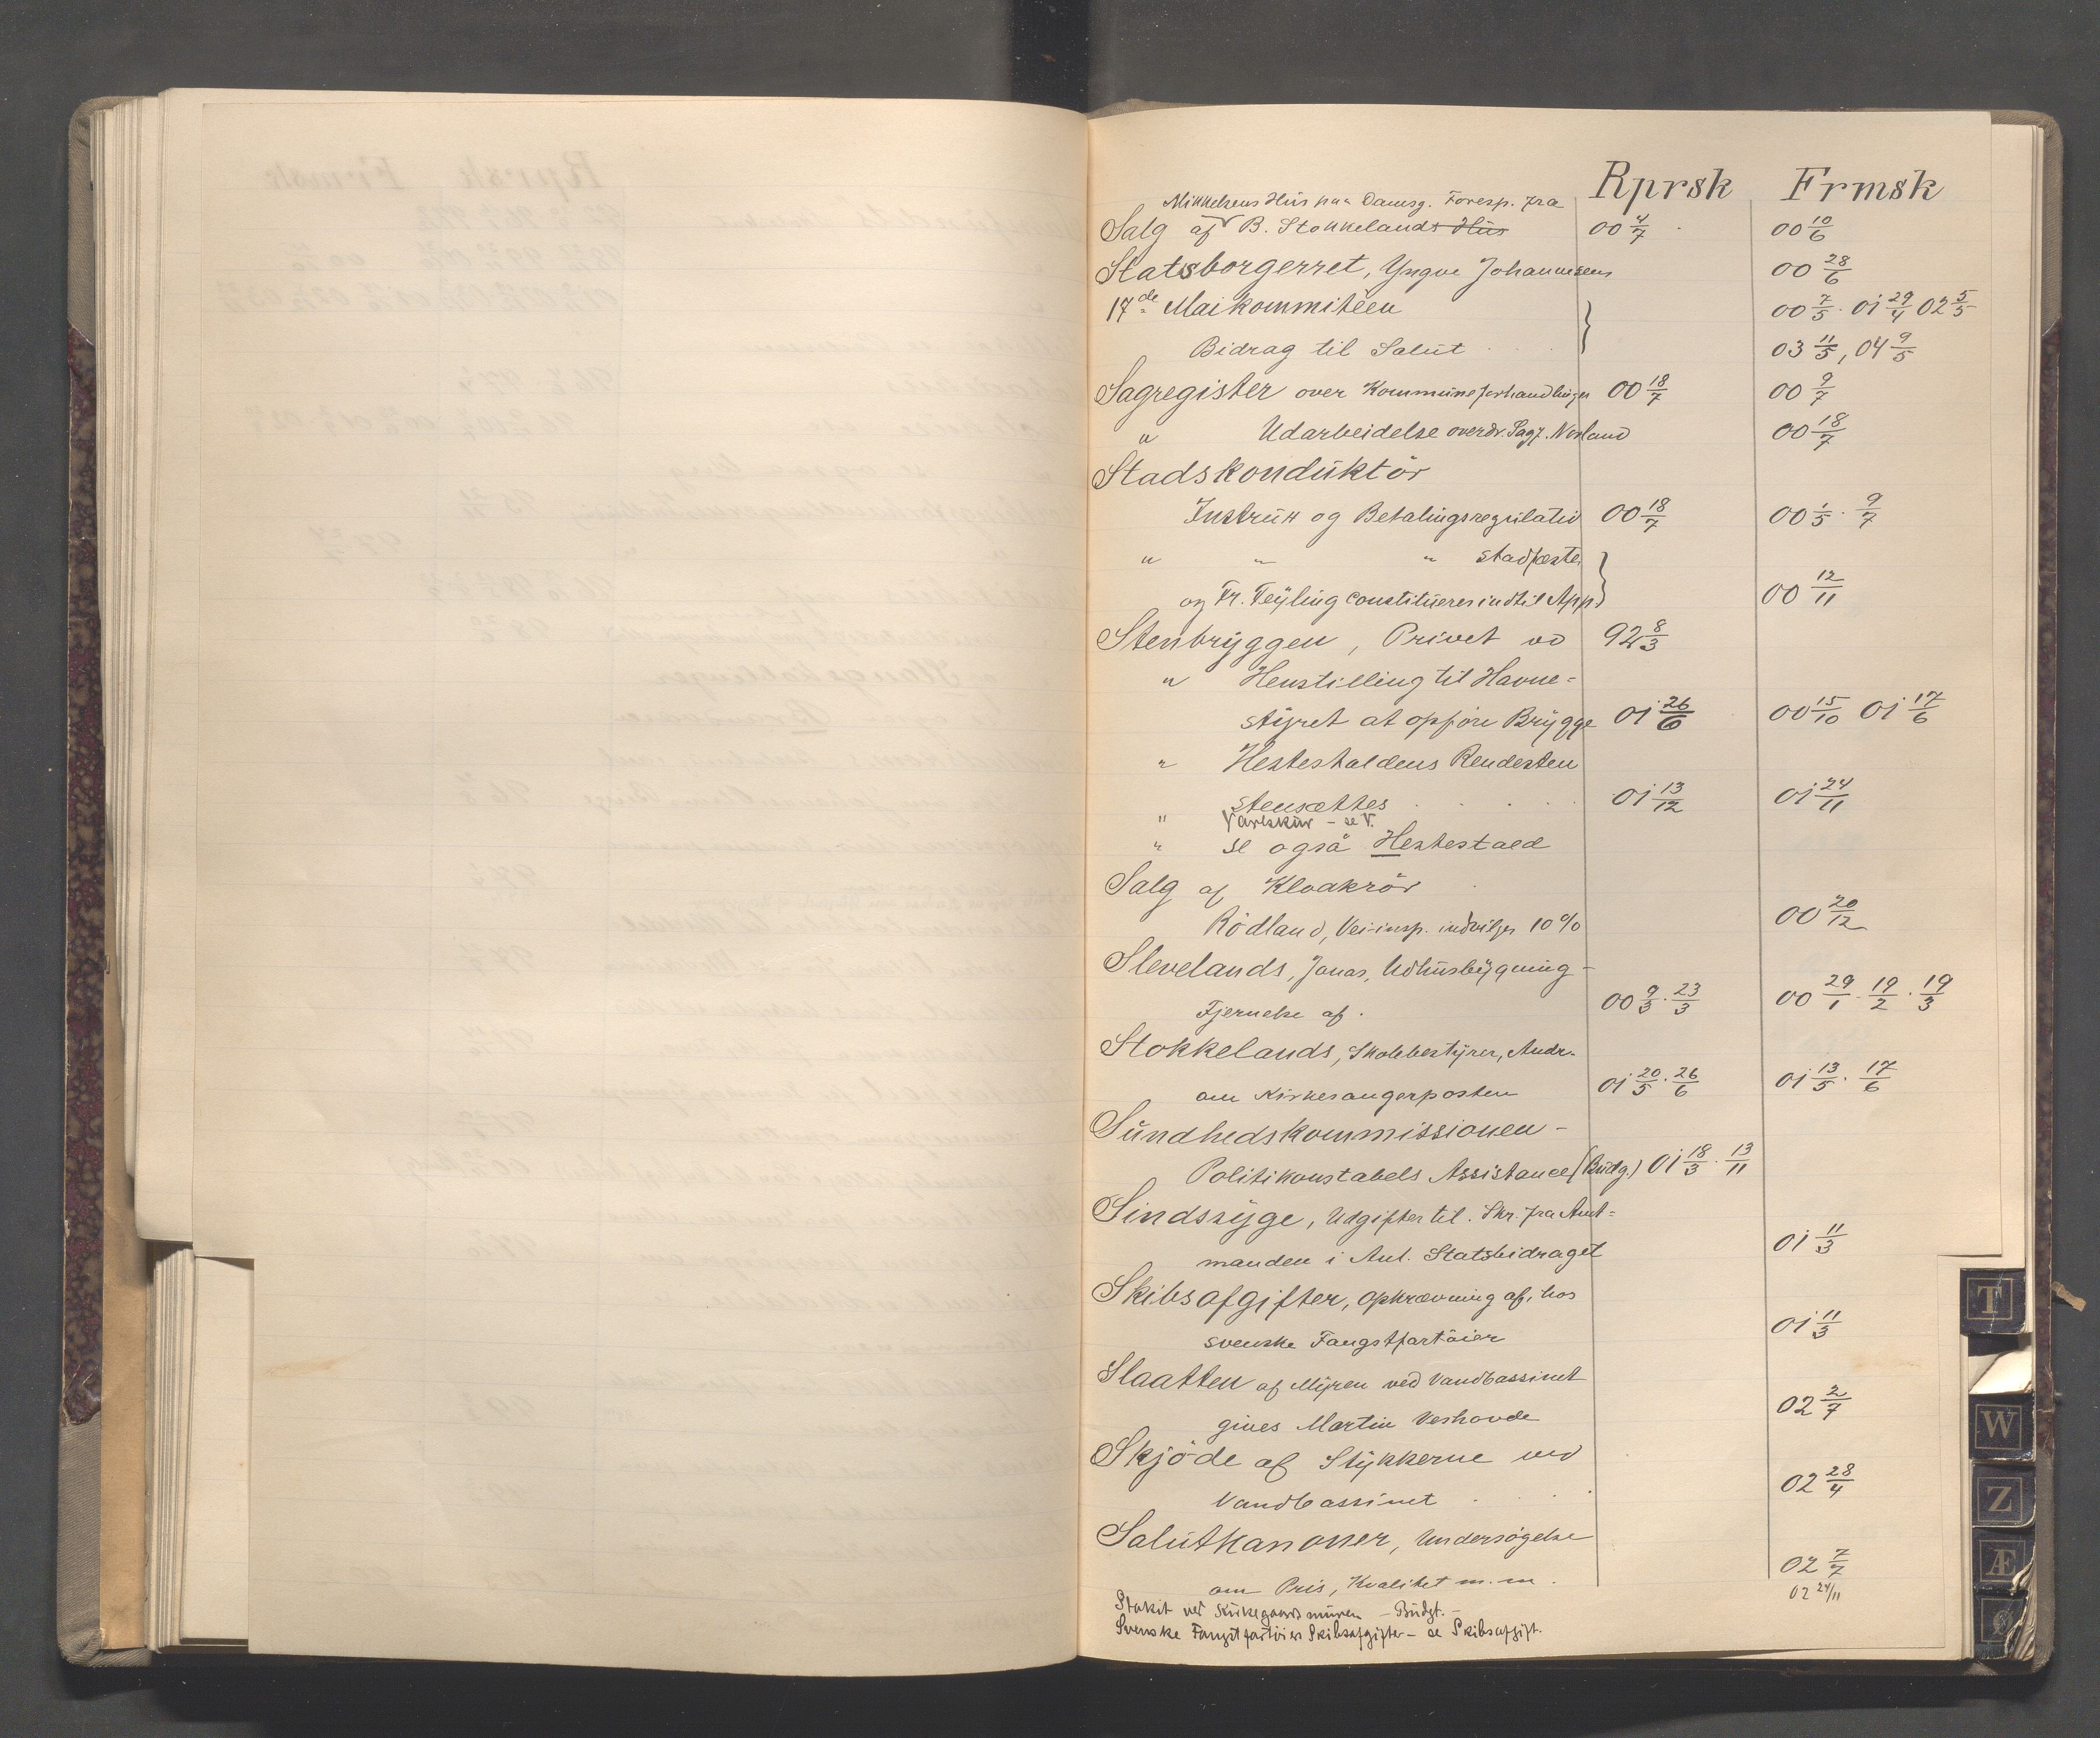 Rprsk Frmsk
Mikkelsens Hus paa Damsg. Foresp. fra
Salg af B. Stokkelands Hus 00 4/7 00 10/6
Statsborgerret, Yngve Johannesens 00 28/6
17de Maikommiteen 00 7/5 · 01 29/4 02 5/5
Bidrag til Salut 03 11/5, 04 9/5
Sagregister over Kommuneforhandlinger 00 18/7 00 9/7
" Udarbeidelse overdr. Sagf. Norland 00 18/7
Stadskonduktör
Instrux og Betalingsregulativ 00 18/7 00 1/5 · 9/7
" " " stadfæstes
og Fr. Feyling constitueres indtil App. 00 12/11
Stenbryggen, Privet vd 92 8/3
" Henstilling til Havne-
styret at opføre Brygge 01 26/6 00 15/10 01 17/6
" Hestestaldens Rendesten
stensættes 01 13/12 01 24/11
" Varlskur - se V.
" se også Hestestald
Salg af Kloakrör
Rödland, Vei-insp. indvilges 10% 00 20/12
Slevelands, Jonas, Udhusbygning -
Fjernelse af. 00 9/3 · 23/3 00 29/1 · 19/2 · 19/3
Stokkelands, Skolebestyrer, Andr.
om Kirkesangerposten 01 20/5 · 26/6 01 13/5 · 17/6
Sundhedskommissionen -
Politikonstabels Assistance (Budg.) 01 18/3 · 13/11
Sindssyge, Udgifter til. Skr. fra Amt-
manden i Anl. Statsbidraget 01 11/3
Skibsafgifter, opkrævning af, hos
svenske Fangstfartöier 01 11/3
Slaatten af Myren ved Vandbassinet
gives Martin Veshovde 02 2/7
Skjöde af Stykkerne ved
Vandbassinet 02 28/4
Salutkanoner, Undersögelse
om Pris, Kvalitet m.m. 02 7/7
02 24/11
Stakit ved Kirkegaardsmuren - Budgt. -
Svenske Fangstfartöiers Skibsafgifter - se Skibsafgift.
T
W
Z
Æ